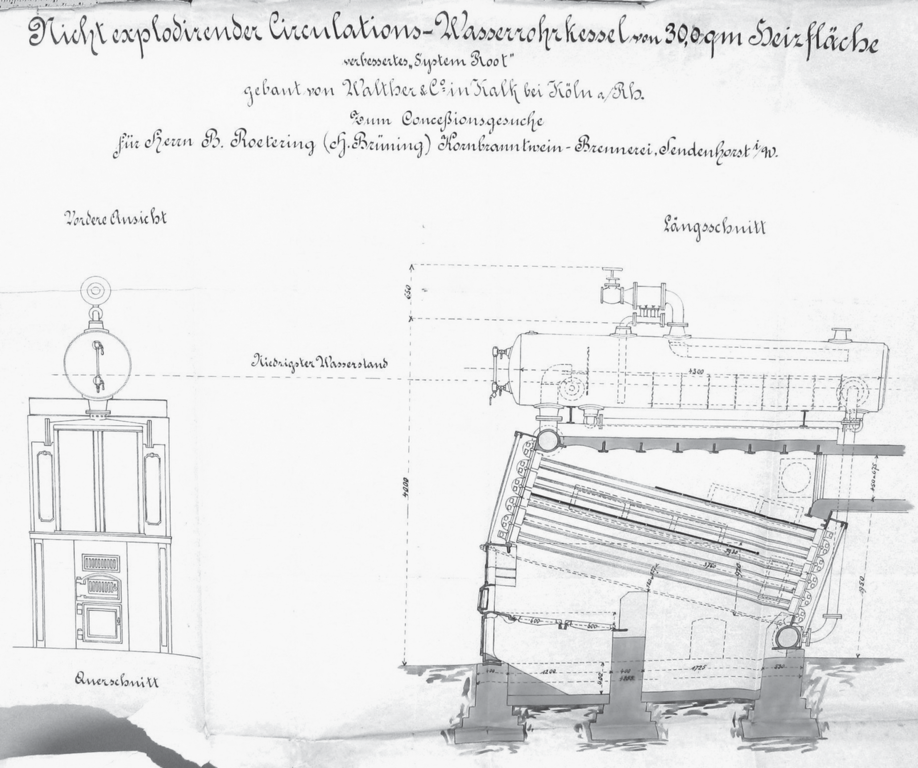 Nicht explodirender Circulations-Wasserrohrkessel von 30,0 qm Heizfläche
verbessertes „System Root"
gebaut von Walther & Co. in Kalk bei Köln a/Rh.
Zum Conceßionsgesuche
für Herrn B. Roetering (H. Brüning) Kornbranntwein-Brennerei, Sendenhorst i/W.
Vordere Ansicht
Längsschnitt
650
Niedrigster Wasserstand
4300
4000
1750
1725
Querschnitt